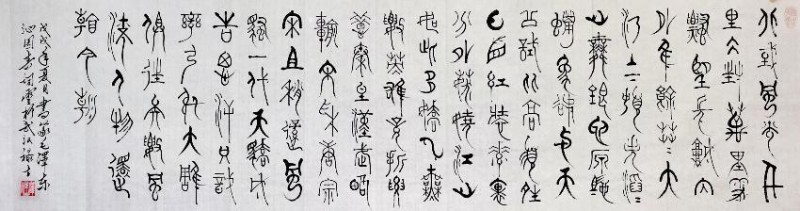 北國風光千
里冰封萬里雪
飄望長城內
外惟餘莽莽大
河上下頓失滔滔
山舞銀蛇原馳
蠟象欲與天
公試比高須晴
日看紅裝素裹
分外妖嬈江山
如此多嬌引無
數英雄競折腰
惜秦皇漢武略
輸文采唐宗
宋祖稍遜風
騷一代天驕成
吉思汗只識
彎弓射大雕
俱往矣數風
流人物還
看今朝
戊戌年夏月書篆毛澤東
沁園春